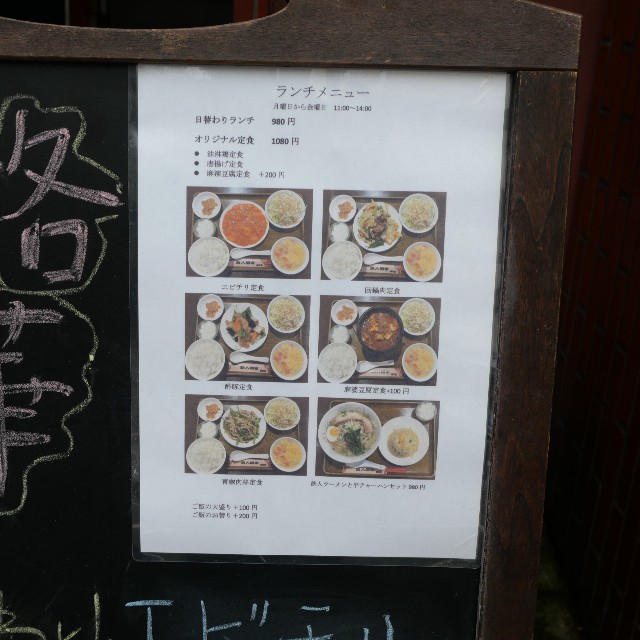 ランチメニュー
月曜日から金曜日 11:00～14:00
日替わりランチ 980円
オリジナル定食 1080円
● 油淋鶏定食
● 唐揚げ定食
● 麻辣豆腐定食 +200円
エビチリ定食
回鍋肉定食
酢豚定食
麻婆豆腐定食+100円
青椒肉絲定食
鉄人ラーメンと半チャーハンセット 980円
ご飯の大盛り+100円
ご飯のお替り+200円
エビチリ